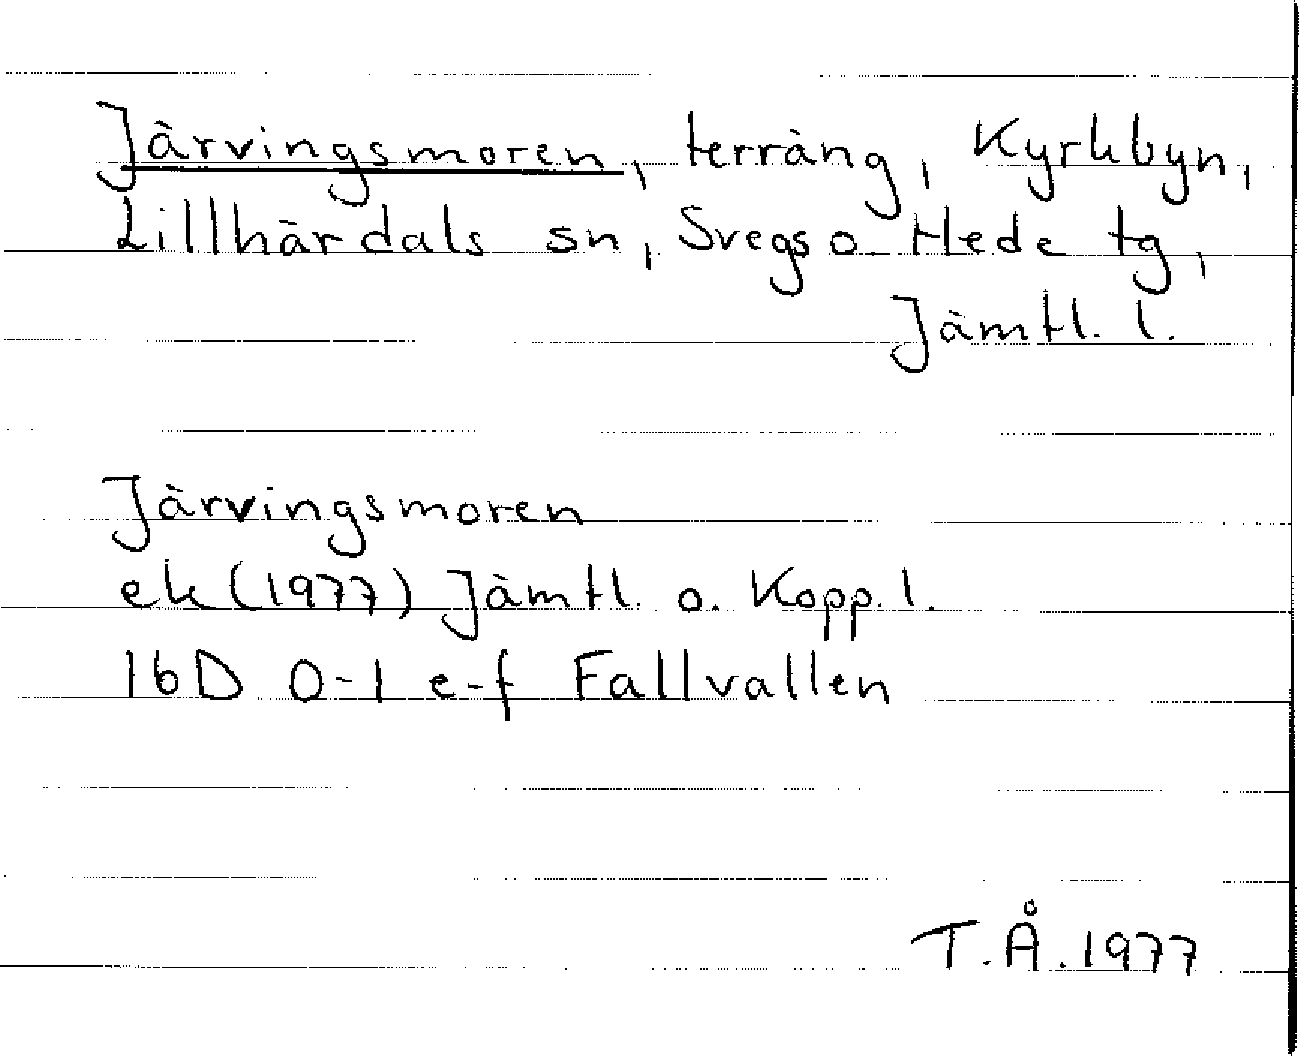 Järvingsmoren, terräng, Kyrkbyn,
Lillhärdals sn, Svegs o. Hede tg,
Jämtl. l.
Järvingsmoren
ek (1977) Jämtl. o. Kopp. l.
16D 0-1 e-f Fallvallen
T.Å. 1977